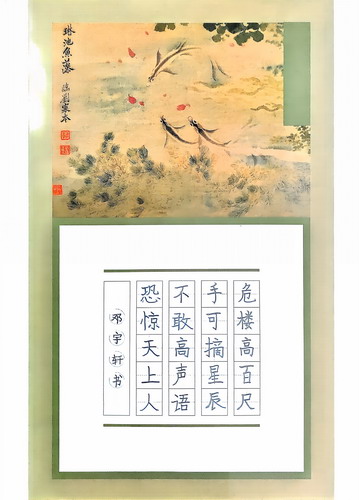 琳池魚藻
危楼高百尺
手可摘星辰
不敢高声语
恐惊天上人
邓宇轩书